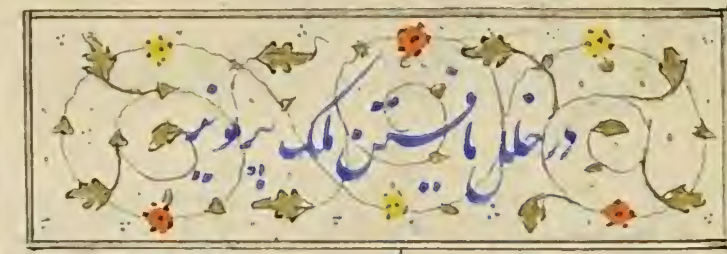 در خلل یافتن ملک پرویز